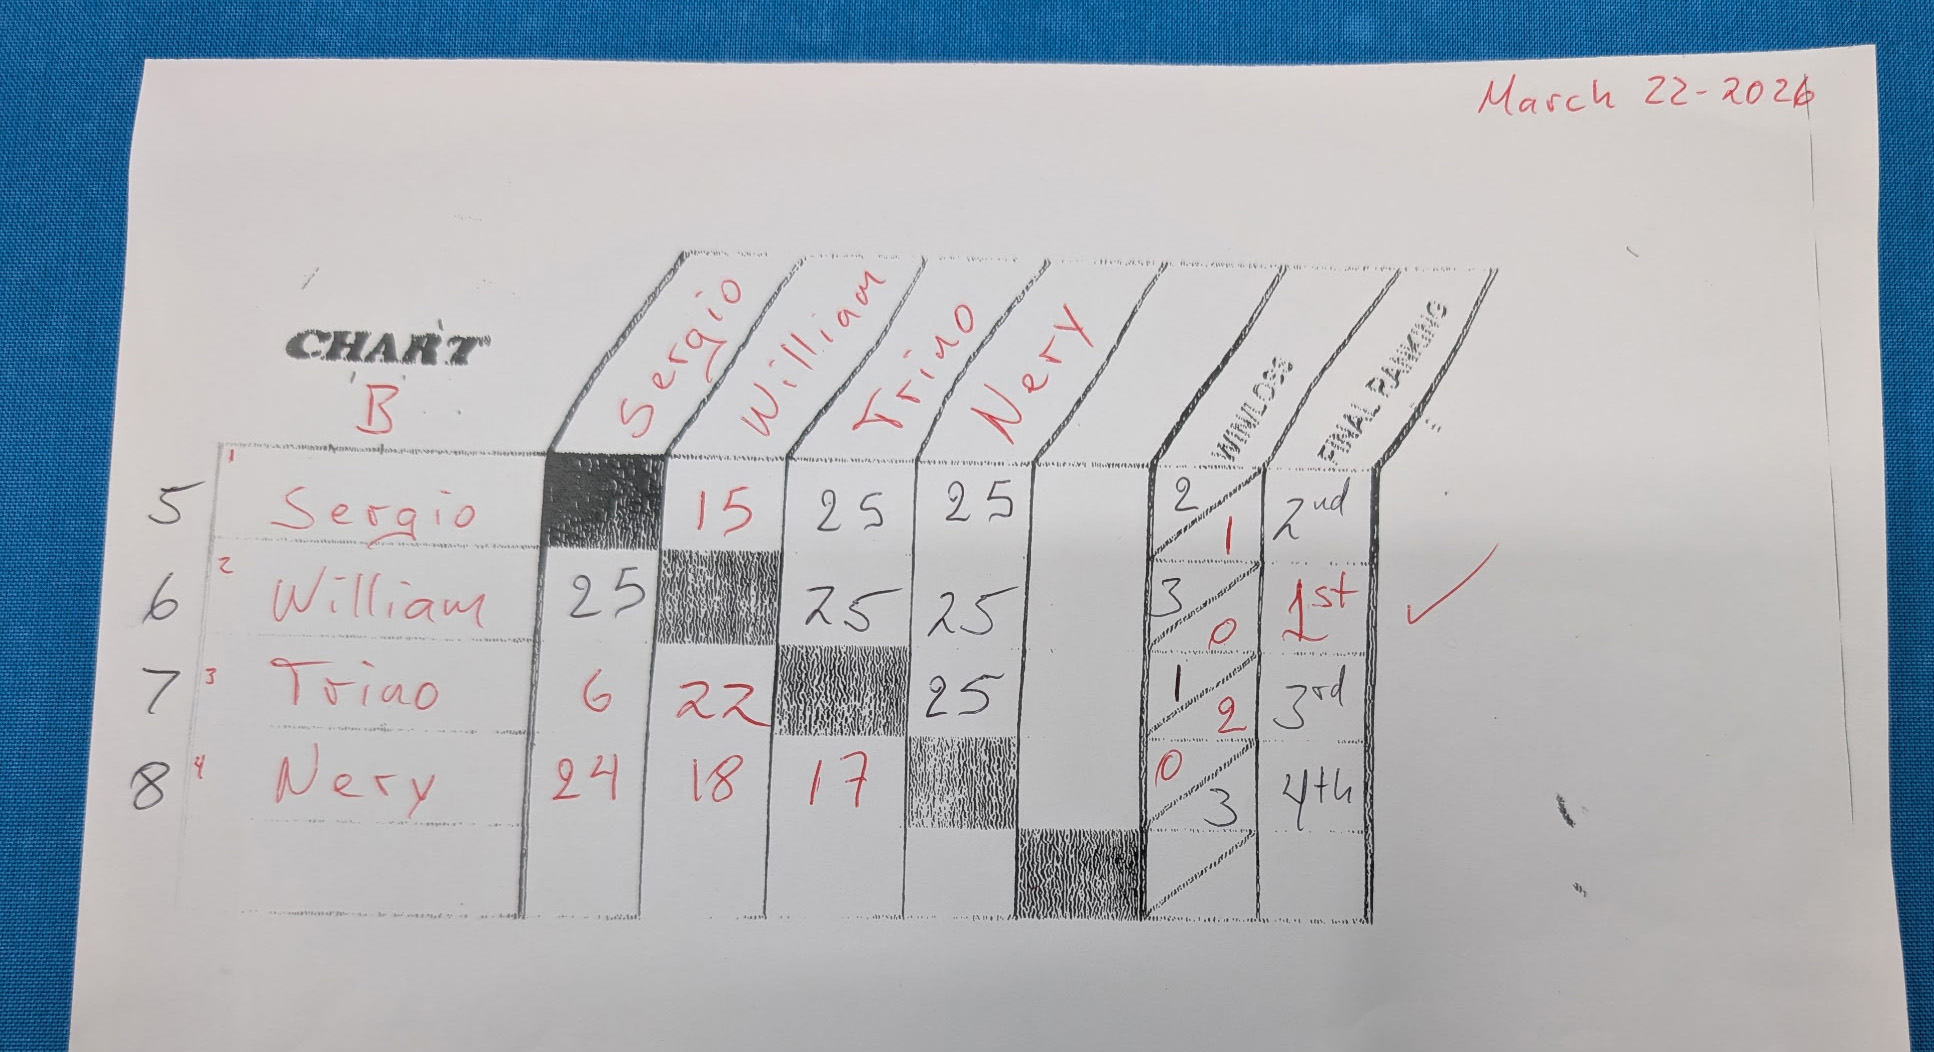 March 22-2026
CHART
B
Sergio William Trino Nery WIN/LOSS FINAL RANKING
5 1 Sergio 15 25 25 2 1 2nd
6 2 William 25 25 25 3 0 1st ✓
7 3 Trino 6 22 25 1 2 3rd
8 4 Nery 24 18 17 0 3 4th